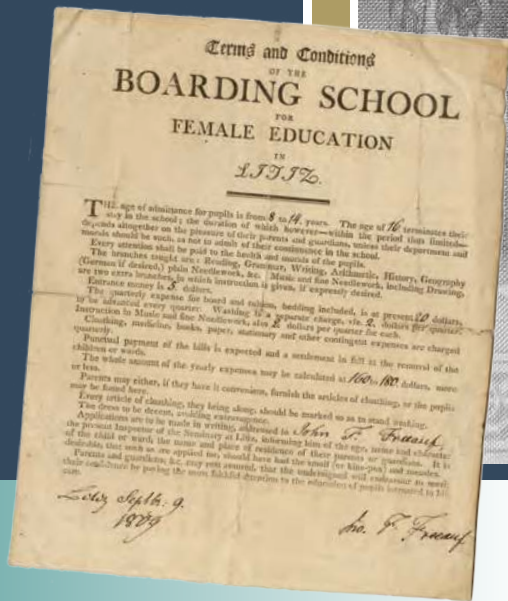 Terms and Conditions
OF THE
BOARDING SCHOOL
FOR
FEMALE EDUCATION
IN
LITIZ.
THE age of admittance for pupils is from 8 to 14 years. The age of 16 terminates their
stay in the school; the duration of which however—within the period thus limited—
depends altogether on the pleasure of their parents and guardians, unless their deportment and
morals should be such, as not to admit of their continuance in the school.
Every attention shall be paid to the health and morals of the pupils.
The branches taught are: Reading, Grammar, Writing, Arithmetic, History, Geography
(German if desired,) plain Needlework, &c. Music and fine Needlework, including Drawing,
are two extra branches, in which instruction is given, if expressly desired.
Entrance money is 5 dollars.
The quarterly expense for board and tuition, bedding included, is at present 20 dollars,
to be advanced every quarter. Washing is a separate charge, viz. 2 dollars per quarter.
Instruction in Music and fine Needlework, also 2 dollars per quarter for each.
Clothing, medicine, books, paper, stationary and other contingent expenses are charged
quarterly.
Punctual payment of the bills is expected and a settlement in full at the removal of the
children or wards.
The whole amount of the yearly expenses may be calculated at 160 to 180 dollars, more
or less.
Parents may either, if they have it convenient, furnish the articles of cloathing, or the pupils
may be found here.
Every article of clothing, they bring along, should be marked so as to stand washing.
The dress to be decent, avoiding extravagance.
Applications are to be made in writing, addressed to John F. Frueauf
the present Inspector of the Seminary at Litiz, informing him of the age, name and character
of the child or ward, the name and place of residence of their parents or guardians. It is
desirable, that such as are applied for, should have had the small (or kine-pox) and measles.
Parents and guardians, &c. may rest assured, that the undersigned will endeavour to merit
their confidence by paying the most faithful attention to the education of pupils intrusted to his
care.
Litiz Septbr. 9.
1809
Jno. F. Frueauf